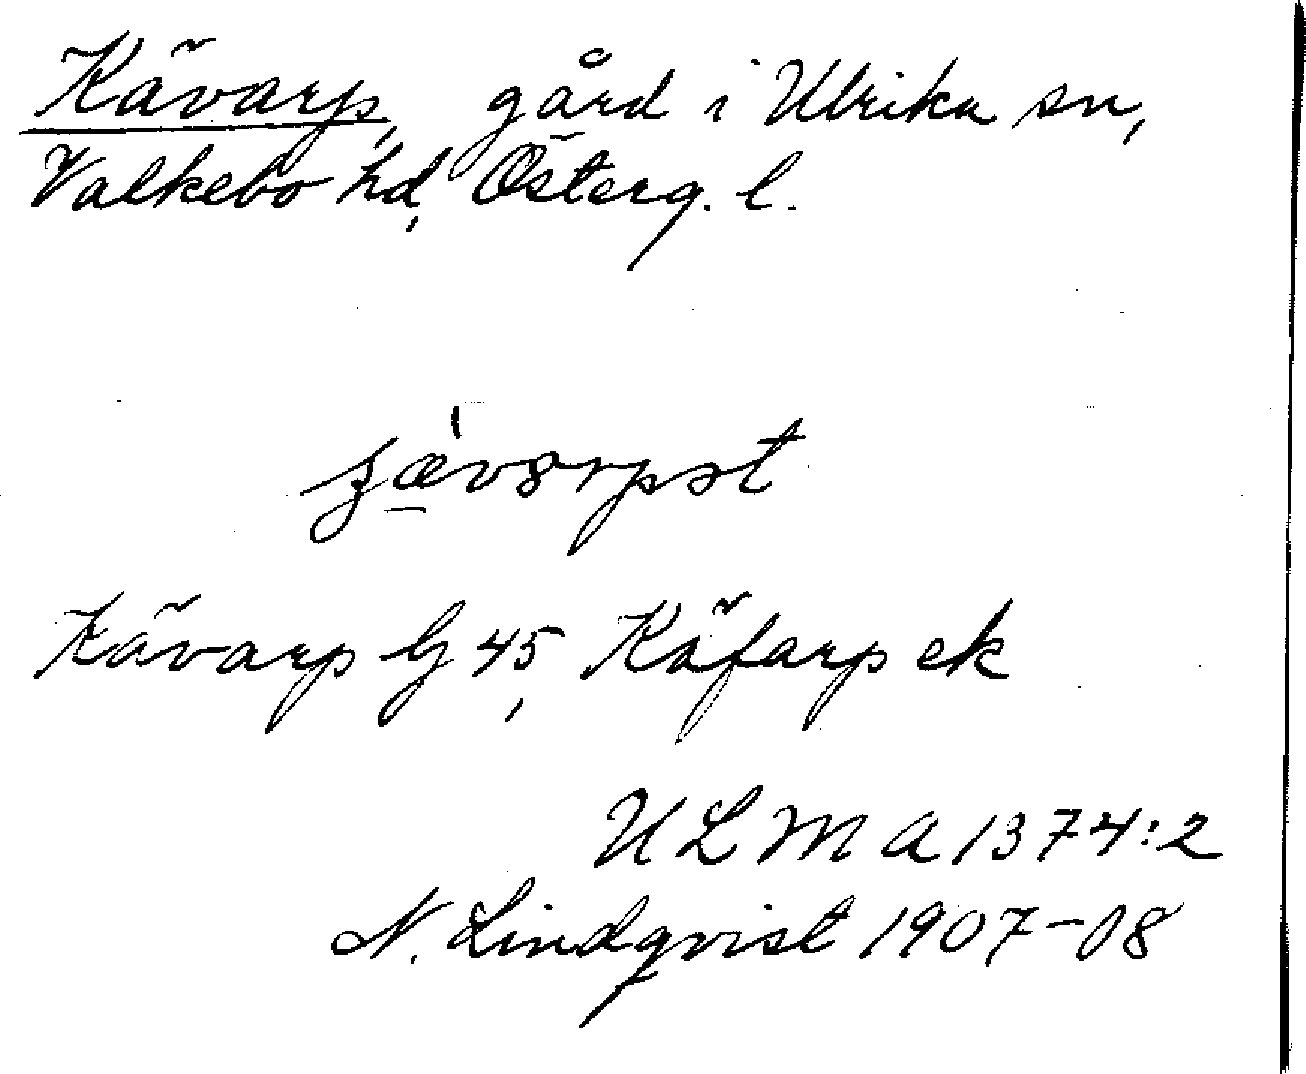 Kävarp, gård i Ulrika sn,
Valkebo hd, Österg. l.
Kävarp G 45, Käfarp ek
ULMA 1374:2
N. Lindqvist 1907-08